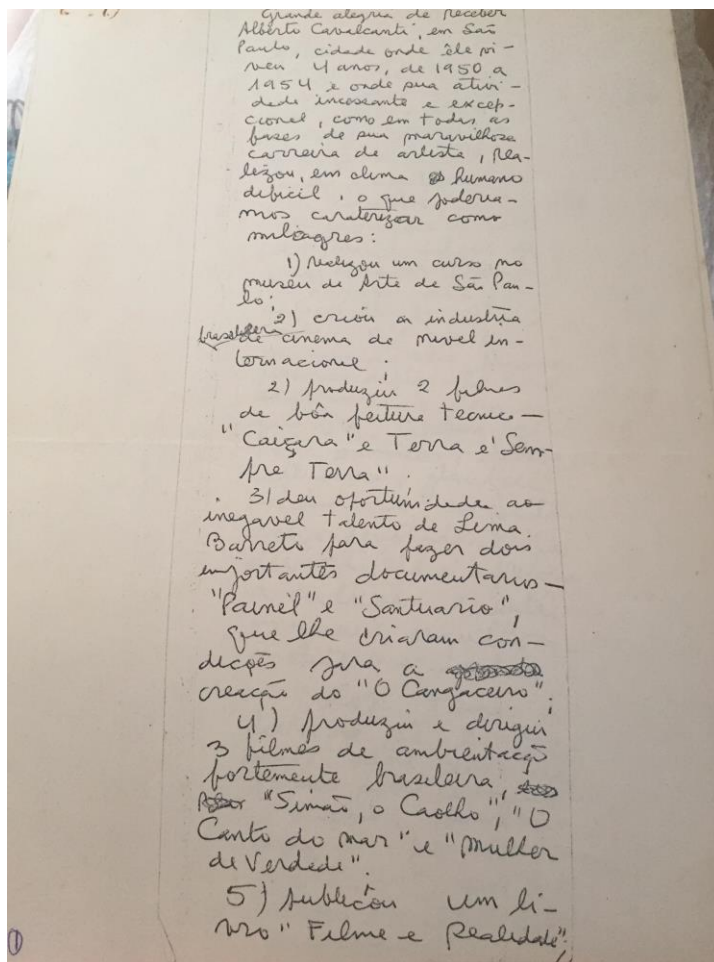 Grande alegria de receber
Alberto Cavalcanti, em São
Paulo, cidade onde êle vi-
veu 4 anos, de 1950 a
1954 e onde sua ativi-
dade incessante e excep-
cional, como em todas as
fases de sua maravilhosa
carreira de artista, rea-
lizou, em clima humano
dificil, o que poderia-
mos caraterizar como
milagres:
1) realizou um curso no
museu de Arte de São Pau-
lo;
2) criou a industria
brasileira de cinema de nivel in-
ternacional;
2) produziu 2 filmes
de bôa feitura tecnica —
"Caiçara" e Terra é Sem-
pre Terra".
3) deu oportunidade ao
inegavel talento de Lima
Barreto para fazer dois
importantes documentarios —
"Painel" e "Santuario",
que lhe criaram con-
dicções para a
creação do "O Cangaceiro".
4) produziu e dirigiu
3 filmes de ambientação
fortemente brasileira,
"Simão, o Caolho", "O
Canto do mar" e "Mulher
de Verdade".
5) publicou um li-
vro "Filme e Realidade";
1